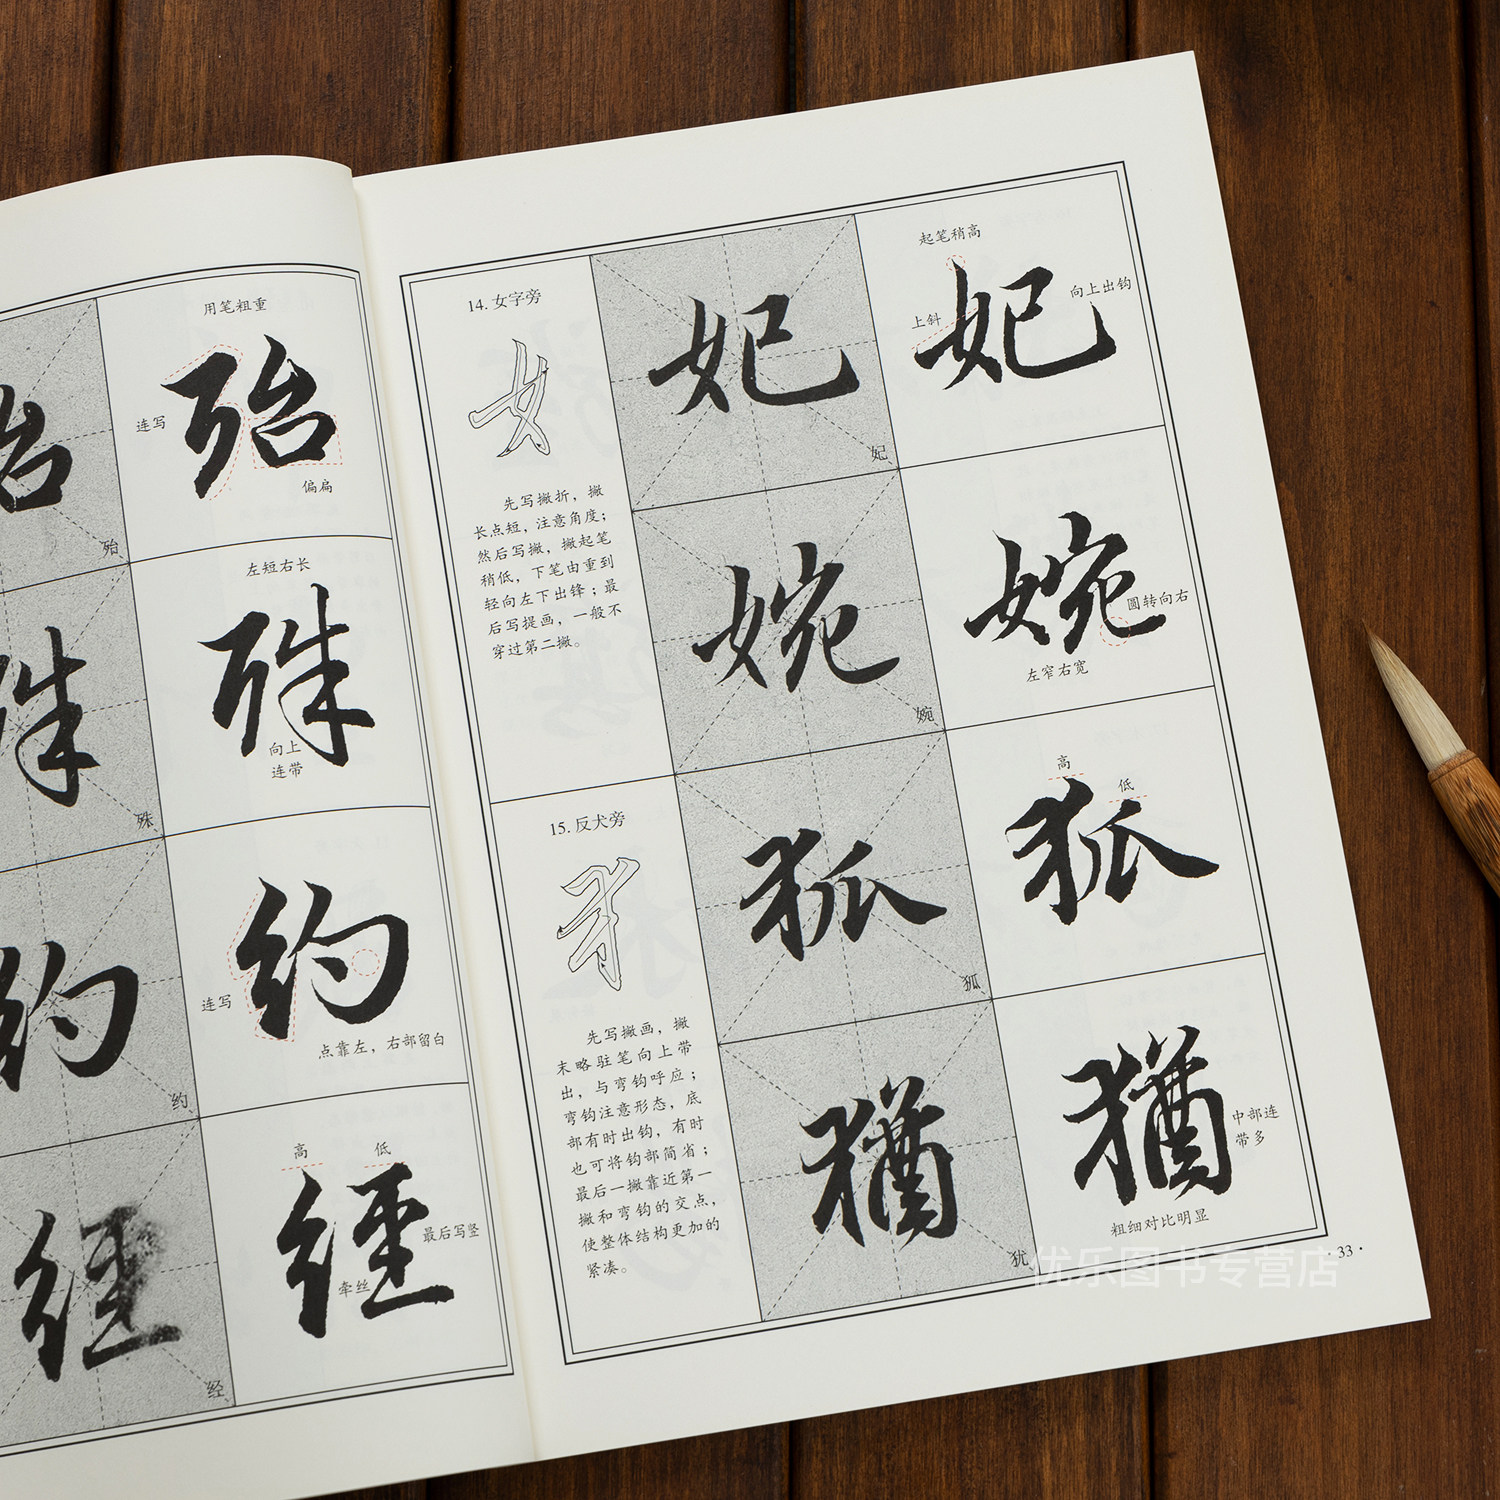 用笔粗重
殆
连写
偏扁
殆
左短右长
殊
向上
连带
殊
约
连写
点靠左，右部留白
约
高
低
經
最后写竖
牵丝
经
14. 女字旁
女
先写撇折，撇
长点短，注意角度；
然后写撇，撇起笔
稍低，下笔由重到
轻向左下出锋；最
后写提画，一般不
穿过第二撇。
妃
妃
起笔稍高
上斜
向上出钩
妃
婉
婉
婉
圆转向右
左窄右宽
15. 反犬旁
犭
先写撇画，撇
末略驻笔向上带
出，与弯钩呼应；
弯钩注意形态，底
部有时出钩，有时
也可将钩部简省；
最后一撇靠近第一
撇和弯钩的交点，
使整体结构更加的
紧凑。
狐
狐
高
低
狐
猶
犹
猶
中部连
带多
粗细对比明显
·33·
优乐图书专营店